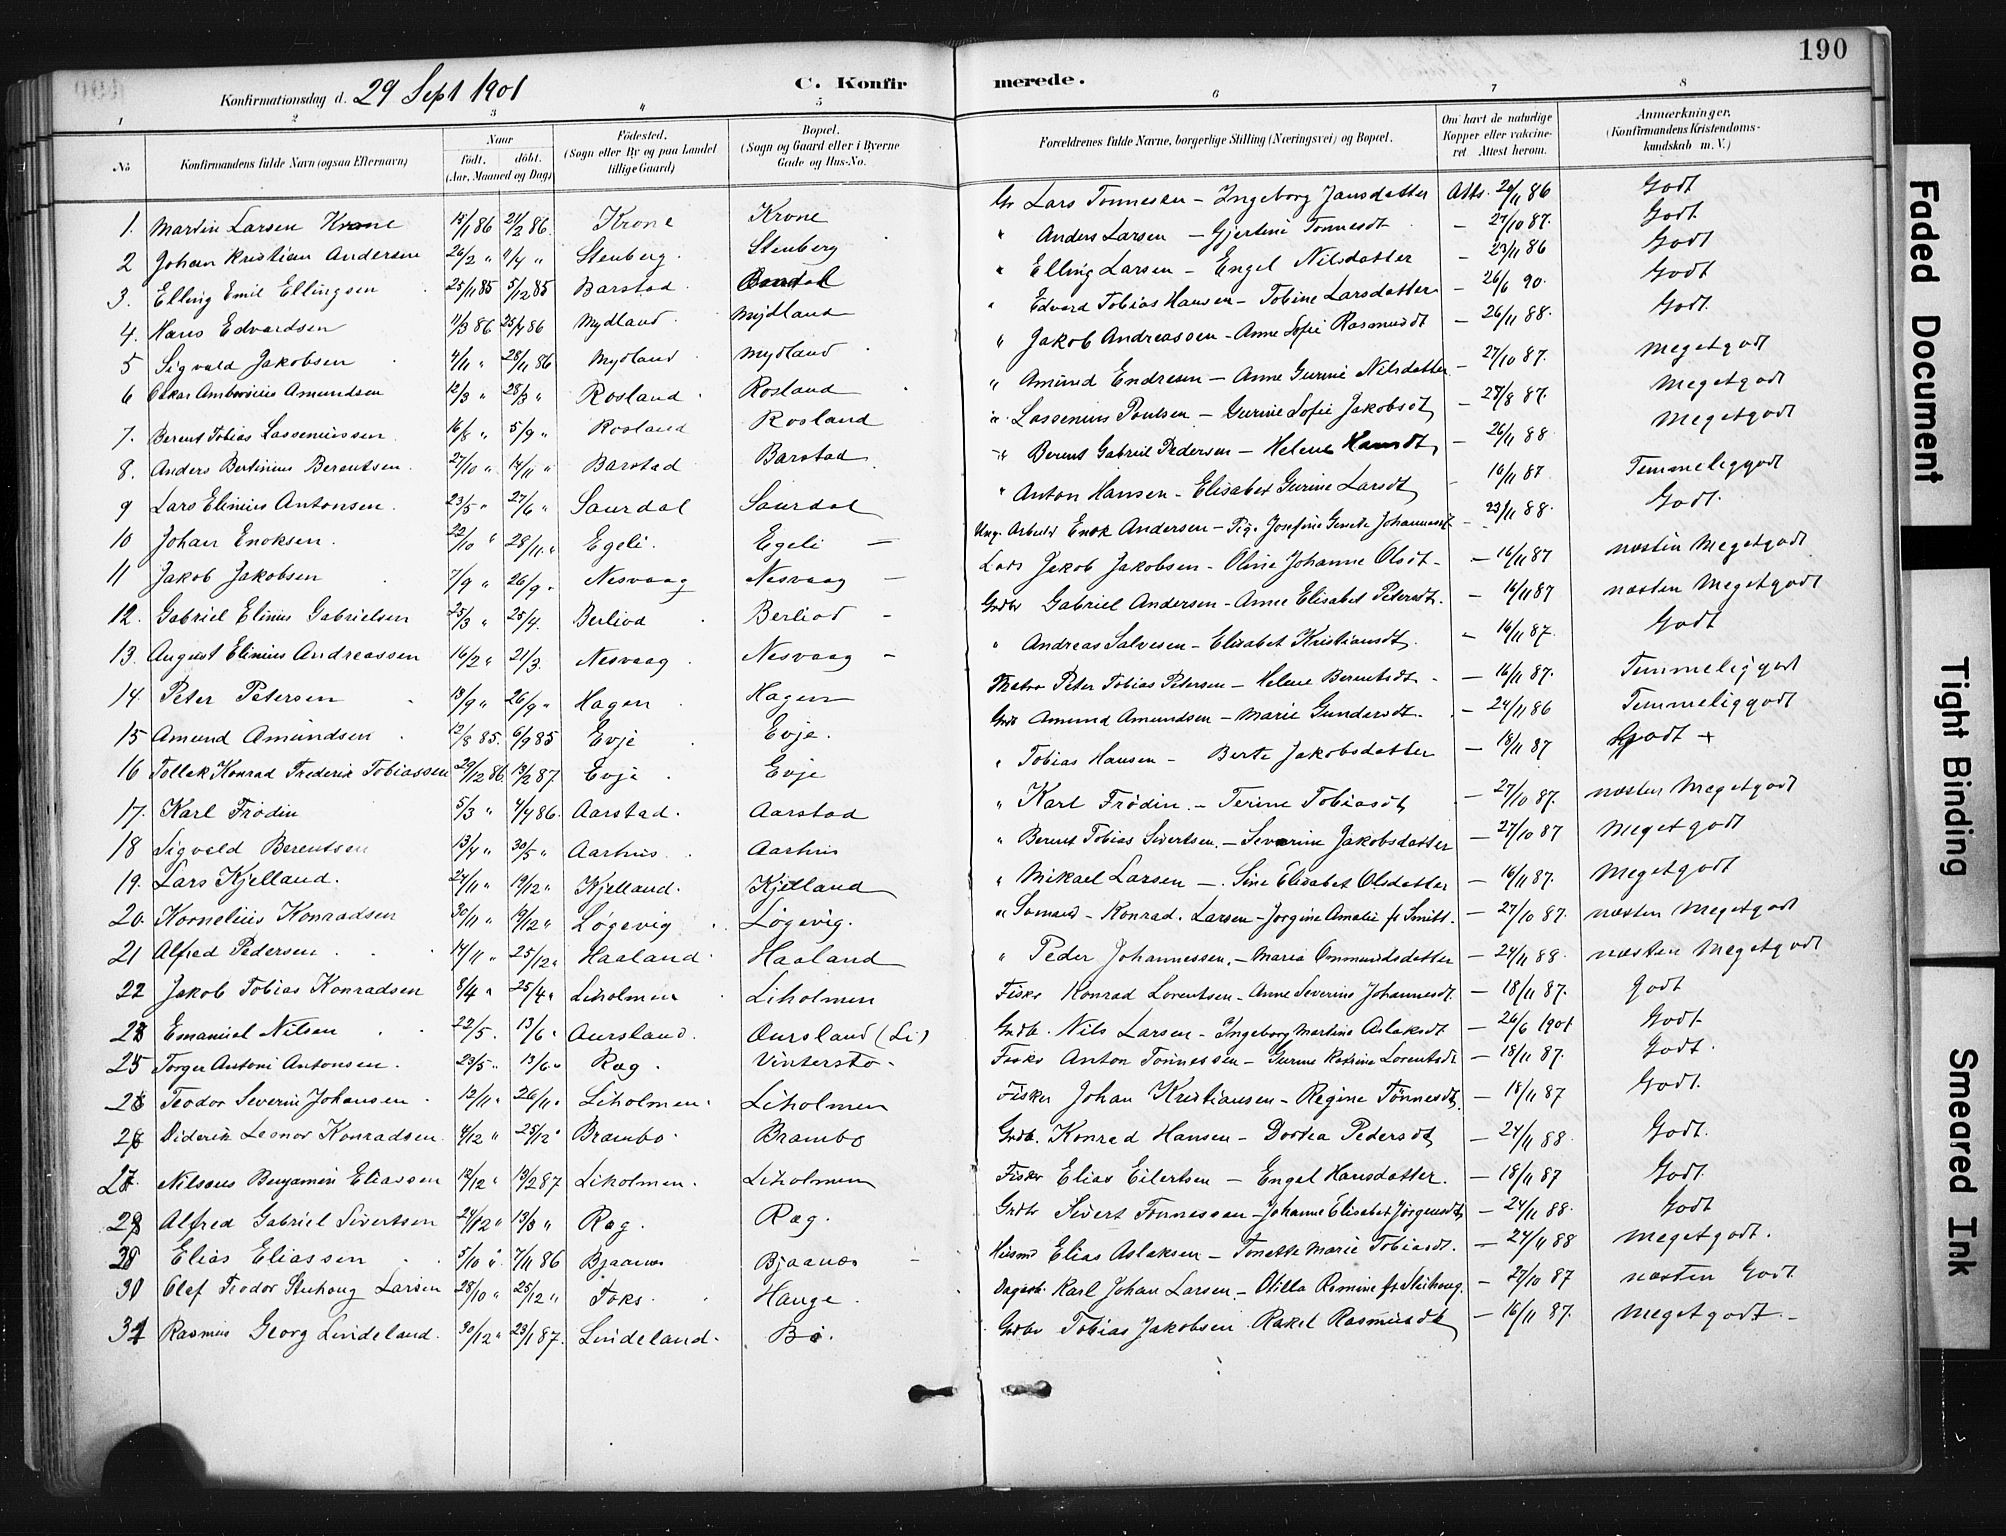 190
Konfirmationsdag d. 29 Sept 1901
C. Konfirmerede.
1 2 3 4 5 6 7 8
No. Konfirmandens fulde Navn (ogsaa Efternavn) Naar født. døbt. (Aar, Maaned og Dag) Fødested. (Sogn eller By og paa Landet tillige Gaard) Bopæl. (Sogn og Gaard eller i Byerne Gade og Hus-No. Forældrenes fulde Navne, borgerlige Stilling (Næringsvei) og Bopæl. Om havt de naturlige Kopper eller vakcineret Attest herom. Anmærkninger. (Konfirmandens Kristendomskundskab m. V.)
1. Martin Larsen Krone 15/1 86 21/2 86. Krone Krone Gr Lars Tønnesen - Ingeborg Jansdatter Atts. 24/11 86 Godt
2 Johan Kristian Andersen 26/2 " 4/4 " Stenberg. Stenberg " Anders Larsen - Gjertine Tønnesdt - 27/10 87. Godt.
3. Elling Emil Ellingsen 25/11 85 5/12 85 Barstad. " Elling Larsen - Engel Nilsdatter - 23/11 86 Godt
4. Hans Edvardsen 11/3 86 25/4 86 Mydland Mydland " Edvard Tobias Hansen - Tobine Larsdatter - 26/6 90. Godt
5 Sigvald Jakobsen 4/11 " 28/11 86 Mydland Mydland " Jakob Andreassen - Anne Sofie Rasmusdt - 26/11 88. Godt.
6 Oskar Ambrosius Amundsen 12/3 " 28/3 " Rosland Rosland " Amund Endresen - Anne Gurine Nilsdatter - 27/10 87. Megetgodt
7. Berent Tobias Lasseniussen 16/8 " 5/9 " Rosland Rosland " Lassenius Poulsen - Gurine Sofie Jakobsdt - 27/8 87. Megetgodt
8. Anders Bertinius Berentsen. 27/10 " 14/11 " Barstad Barstad " Berent Gabriel Pedersen - Helene Hansdt - 26/11 88 Megetgodt
9 Lars Elinius Antonsen. 23/5 " 27/6 " Saurdal Saurdal " Anton Hansen - Elisabet Gurine Larsdt - 16/11 87 Temmeliggodt
10 Johan Enoksen. 22/10 " 28/11 " Egeli. Egeli - Ung. Arbeid Enok Andersen - Pig. Josefine Johannesdt - 23/11 88. Godt.
11 Jakob Jakobsen 7/9 " 26/9 " Nesvaag Nesvaag - Lods Jakob Jakobsen - Oline Johanne Olsdt - 16/11 87 næsten Megetgodt
12. Gabriel Elinius Gabrielsen 25/3 " 25/4. Berliod Berliod - Grdbr Gabriel Andersen - Anne Elisabet Petersdt. - 16/11 87 næsten Megetgodt
13. August Elinius Andreassen 16/2 " 21/3. Nesvaag Nesvaag - " Andreas Salvesen - Elisabet Kristiansdt. - 16/11 87. Godt
14. Peter Petersen 13/9 " 26/9 " Hagen Hagen Peter Tobias Petersen - Helene Berentsdt - - 16/11 87. Temmeliggodt
15 Amund Amundsen 12/8 85. 6/9 85 Evje Evje. Grdb Amund Amundsen - Marie Gundersdt. - 24/11 86 Temmeliggodt
16 Tollak Konrad Frederik Tobiassen 29/12 86. 13/2 87. Evje Evje " Tobias Hansen - Berte Jakobsdatter - 18/11 87 Godt +
17. Karl Frödin 5/3 " 4/4 86. Aarstad. Aarstad " Karl Frödin. - Terine Tobiasdt - 27/10 87. næsten Megetgodt
18 Sigvald Berentsen 13/4 " 30/5 " Aarhus Aarhus " Berent Tobias Sivertsen. - Severine Jakobsdatter - 27/10 87 Megetgodt
19. Lars Kjelland. 24/11 " 19/12 " Kjelland. Kjelland " Mikael Larsen - Sine Elisabet Olsdatter - 16/11 87. Megetgodt
20. Kornelius Konradsen 30/11 " 19/12 " Løgevig Løgevig. " Sømand - Konrad. Larsen - Jorgine Amalie f. Smitt. - 27/10 87. næsten Megetgodt
21 Alfred Pedersen 14/11 " 25/12 " Haaland Haaland " Peder Johannessen. - Maria Ommundsdatter - 24/11 88. næsten Megetgodt
22 Jakob Tobias Konradsen 8/4 " 25/4 " Liholmen Liholmen Fisker Konrad Lorentsen - Anne Severine Johannesdt. - 18/11 87. Godt
23 Emanuel Nilsen 22/5. 13/6 " Aursland. Aursland (Li) Grdb. Nils Larsen - Ingeborg Martine Aslaksdt - 26/6 1901 Godt
25 Torger Antoni Antonsen. 23/5 " 13/6 " Ræg. Vintersto. Fisker Anton Tønnessen - Gurine Katrine Lorentsdt - 18/11 87. Godt.
Teodor Severin Johansen 12/11 " 26/11 " Liholmen. Liholmen Fisker Johan Kristiansen - Regine Tønnesdt. - 18/11 87 Godt.
26 Diderik Leonor Konradsen 4/12 " 25/12 " Brambo. Brambo Grdb. Konrad Hansen - Dortea Pedersdt - 24/11 88. Godt.
27. Nilsæus Benjamin Eliassen 12/12 " 13/2 87 Liholmen. Liholmen Fisker Elias Eilertsen - Engel Hansdatter. - 18/11 87 Godt
28 Alfred Gabriel Sivertsen 24/12 " 13/3 " Ræg. Ræg. Grdbr Sivert Tønnessen - Johanne Elisabet Jørgensdt - 24/11 88. Godt
Elias Eliassen 5/10 " 7/11 86 Bjaanes Bjaanes - Husmd Elias Aslaksen - Tonette Marie Tobiasdt. - 24/11 88 Megetgodt.
30 Olaf Teodor Larsen 28/10 " 25/12 " Foks. Hauge. Karl Johan Larsen - Otilla - 27/10 87 næsten Godt
31 Rasmus Georg Lindeland. 30/12 " 23/1 87. Lindeland. Bø. Grdbr Tobias Jakobsen Rakel Rasmusdt - 16/11 87. Megetgodt. -
Faded Document
Tight Binding
Smeared Ink